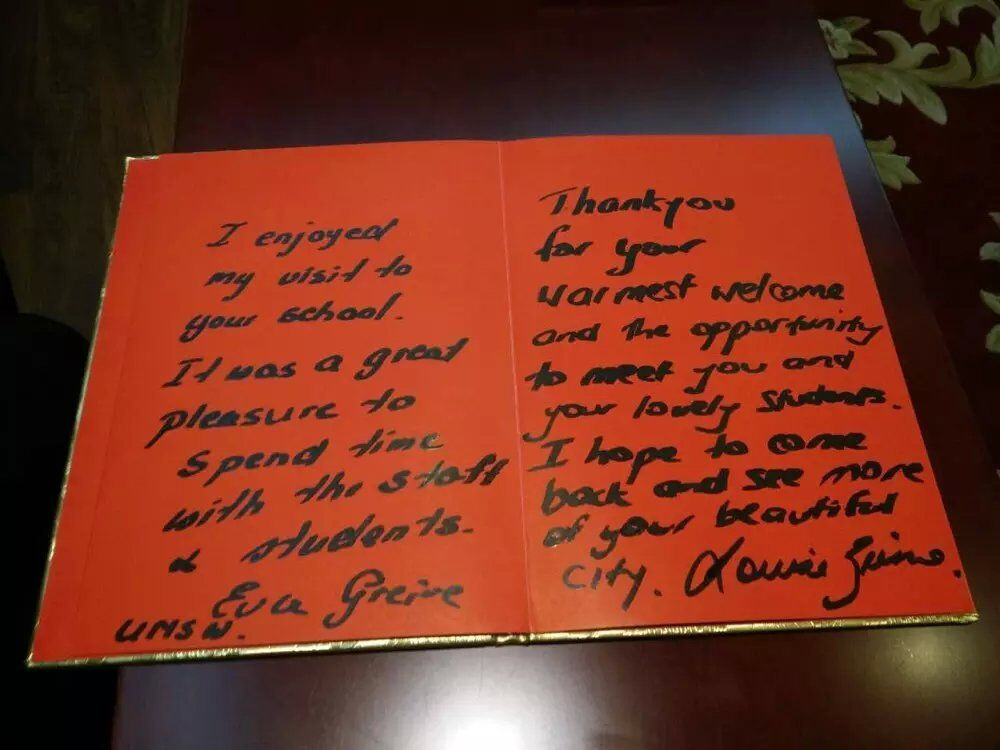 I enjoyed
my visit to
your school.
It was a great
pleasure to
spend time
with the staff
& students.
Eva Greire
UNSW.
Thankyou
for your
warmest welcome
and the opportunity
to meet you and
your lovely students.
I hope to come
back and see more
of your beautiful
city.